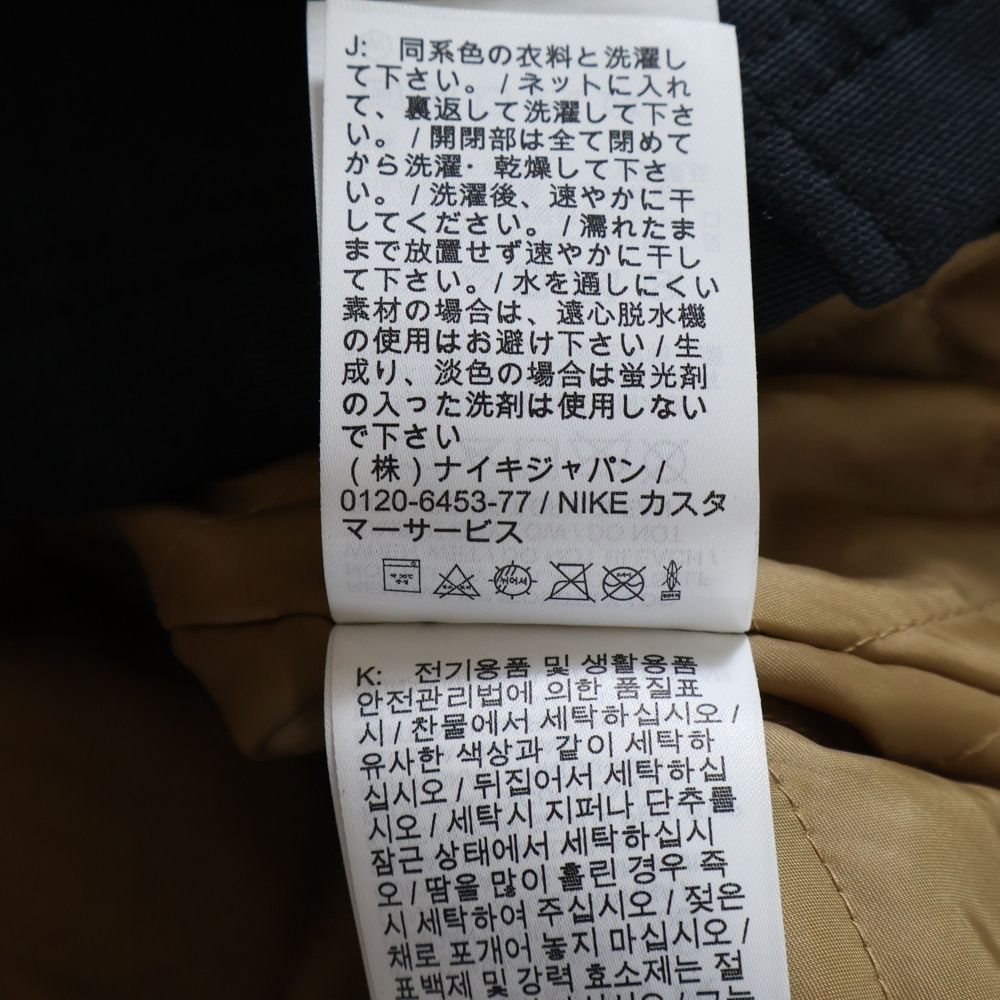 J: 同系色の衣料と洗濯し
て下さい。 / ネットに入れ
て、裏返して洗濯して下さ
い。 / 開閉部は全て閉めて
から洗濯・乾燥して下さ
い。 / 洗濯後、速やかに干
してください。 / 濡れたま
まで放置せず速やかに干し
て下さい。 / 水を通しにくい
素材の場合は、遠心脱水機
の使用はお避け下さい / 生
成り、淡色の場合は蛍光剤
の入った洗剤は使用しない
で下さい
(株) ナイキジャパン /
0120-6453-77 / NIKE カスタ
マーサービス
약 30℃
중성
K: 전기용품 및 생활용품
안전관리법에 의한 품질표
시 / 찬물에서 세탁하십시오 /
유사한 색상과 같이 세탁하
십시오 / 뒤집어서 세탁하십
시오 / 세탁시 지퍼나 단추를
잠근 상태에서 세탁하십시
오 / 땀을 많이 흘린 경우 즉
시 세탁하여 주십시오 / 젖은
채로 포개어 놓지 마십시오 /
표백제 및 강력 효소제는 절